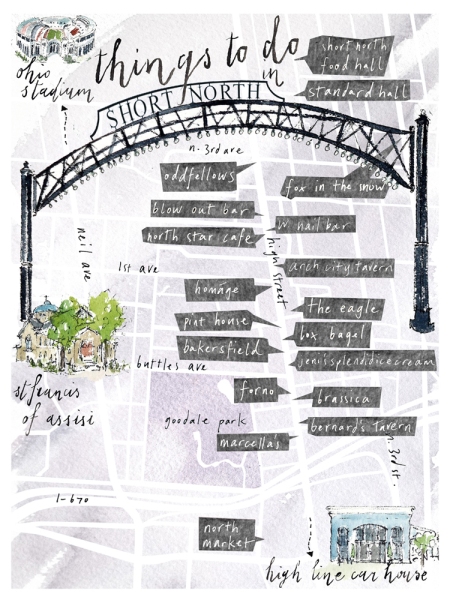 things to do
in
SHORT NORTH
ohio
stadium
short north
food hall
standard hall
n. 3rd ave
oddfellows
fox in the snow
blow out bar
w nail bar
north star cafe
neil ave
high street
1st ave
arch city tavern
homage
the eagle
pint house
box bagel
bakersfield
jenissplendidicecream
buttles ave
st francis
of assisi
forno
brassica
goodale park
bernard's tavern
marcella's
n. 3rd st.
1-670
north
market
high line car house